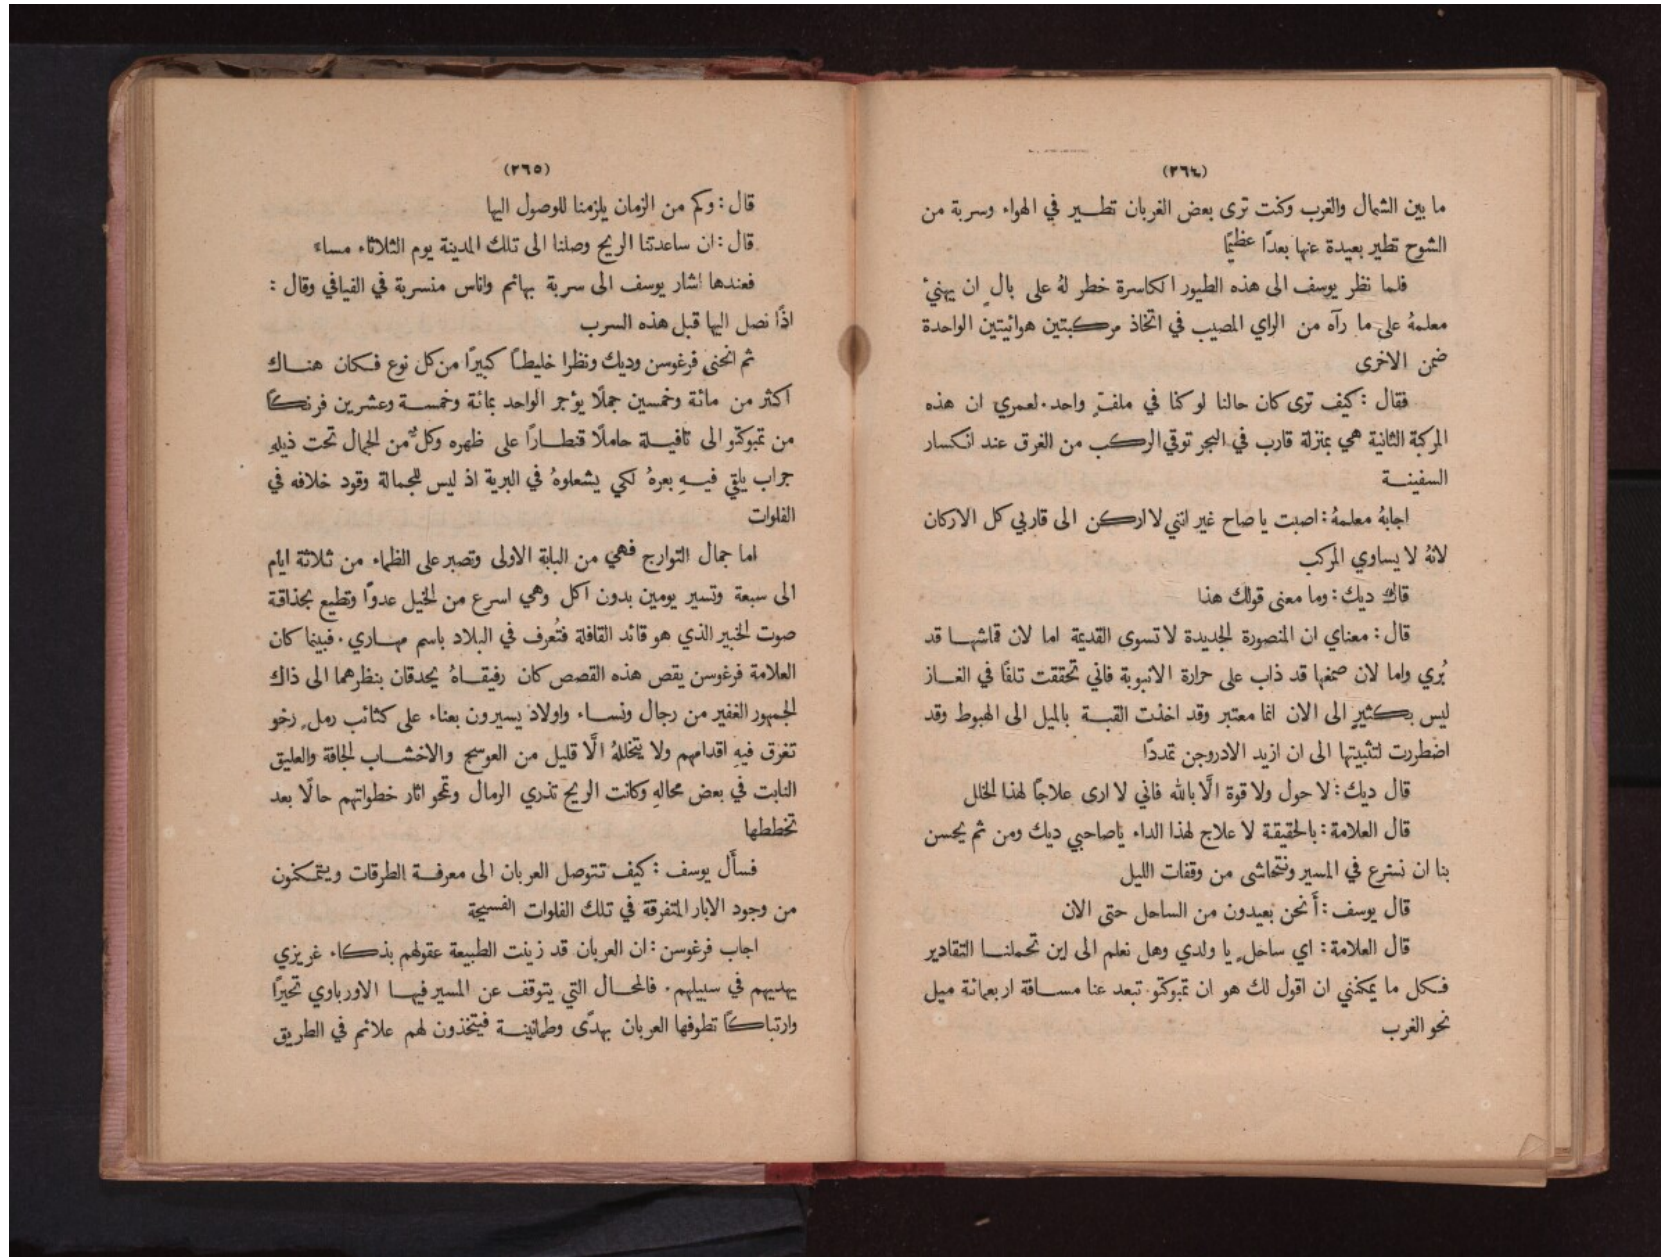 (٢٦٤)
ما بين الشمال والغرب وكنت ترى بعض الغربان تطير في الهواء وسربة من
الشوح تطير بعيدة عنها بعدًا عظيمًا
فلما نظر يوسف الى هذه الطيور الكاسرة خطر لهُ على بالٍ ان يهنئ
معلمهُ على ما رآه من الراي المصيب في اتخاذ مركبتين هوائيتين الواحدة
ضمن الاخرى
فقال : كيف ترى كان حالنا لو كنا في ملفتٍ واحد . لعمري ان هذه
المركبة الثانية هي بمنزلة قارب في البحر توقي الركب من الغرق عند انكسار
السفينة
اجابهُ معلمهُ : اصبت يا صاح غير انني لا اركن الى قاربي كل الاركان
لانهُ لا يساوي المركب
قال ديك : وما معنى قولك هذا
قال : معناي ان المنصورة الجديدة لا تسوى القديمة اما لان قماشها قد
بُري واما لان صمغها قد ذاب على حرارة الانبوبة فاني تحققت تلفًا في الغاز
ليس بكثيرٍ الى الان انما معتبر وقد اخذت القبة بالميل الى الهبوط وقد
اضطررت لتثبيتها الى ان ازيد الادروجن تمددًا
قال ديك : لا حول ولا قوة الَّا بالله فاني لا ارى علاجًا لهذا الخلل
قال العلامة : بالحقيقة لا علاج لهذا الداء ياصاحبي ديك ومن ثم يحسن
بنا ان نسترع في المسير ونتحاشى من وقفات الليل
قال يوسف : أَنحن بعيدون من الساحل حتى الان
قال العلامة : اي ساحلٍ يا ولدي وهل نعلم الى اين تحملنا التقادير
فكل ما يمكنني ان اقول لك هو ان تمبوكتو تبعد عنا مسافة اربعمائة ميل
نحو الغرب
(٢٦٥)
قال : وكم من الزمان يلزمنا للوصول اليها
قال : ان ساعدتنا الريح وصلنا الى تلك المدينة يوم الثلاثاء مساءً
فعندها اشار يوسف الى سربة بهائم واناس منسربة في الفيافي وقال :
اذًا نصل اليها قبل هذه السرب
ثم انحنى فرغوسن وديك ونظرا خليطًا كبيرًا من كل نوع فكان هناك
اكثر من مائة وخمسين جملًا يؤجر الواحد بمائة وخمسة وعشرين فرنكًا
من تمبوكتو الى تافيلة حاملًا قنطارًا على ظهره وكلٌ من الجمال تحت ذيلهِ
جراب يلقي فيهِ بعرهُ لكي يشعلوهُ في البرية اذ ليس للجمالة وقود خلافه في
الفلوات
اما جمال التوارج فهي من البابة الاولى وتصبر على الظماء من ثلاثة ايام
الى سبعة وتسير يومين بدون اكل وهي اسرع من الخيل عدوًا وتطيع بحذاقة
صوت الخبير الذي هو قائد القافلة فتُعرف في البلاد باسم مهاري . فبينما كان
العلامة فرغوسن يقص هذه القصص كان رفيقاهُ يحدقان بنظرهما الى ذاك
الجمهور الغفير من رجال ونساء واولاد يسيرون بعناء على كثائب رملٍ رخو
تغرق فيهِ اقدامهم ولا يتخللهُ الَّا قليل من العوسج والاخشاب الجافة والعليق
النابت في بعض محالهِ وكانت الريح تذري الرمال وتمحو اثار خطواتهم حالًا بعد
تخططها
فسأَل يوسف : كيف تتوصل العربان الى معرفة الطرقات ويتمكنون
من وجود الابار المتفرقة في تلك الفلوات الفسيحة
اجاب فرغوسن : ان العربان قد زينت الطبيعة عقولهم بذكاء غريزي
يهديهم في سبيلهم . فالمحال التي يتوقف عن المسير فيها الاورباوي تحيرًا
وارتباكًا تطوفها العربان بهدًى وطمانينة فيتخذون لهم علائم في الطريق